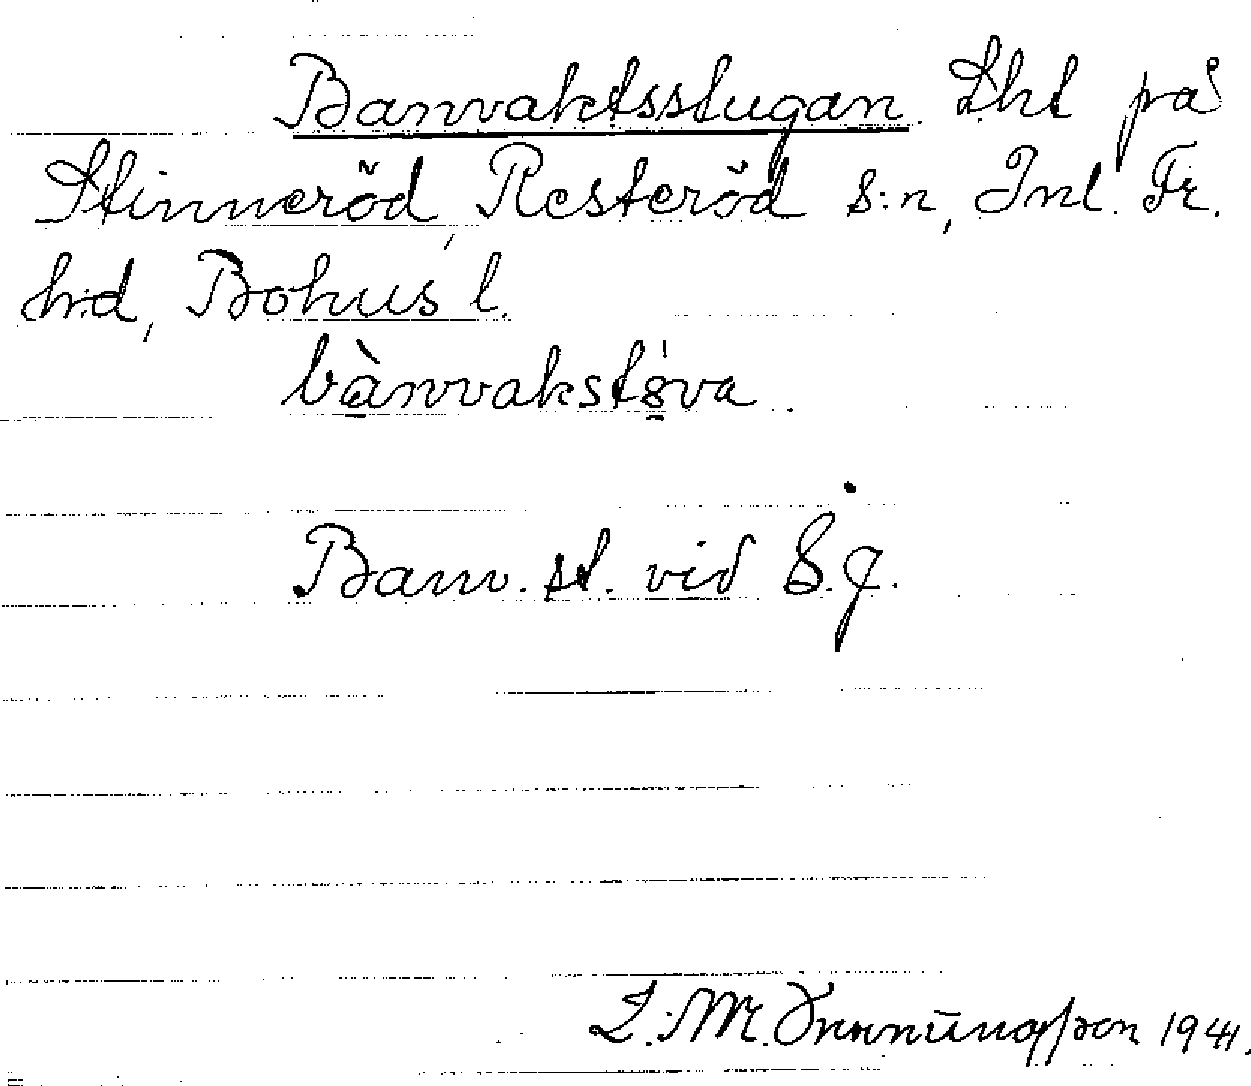 Banvaktsstugan. Lht på
Stinneröd, Resteröd s:n, Inl. Fr.
h:d, Bohus l.
bànvakstöva.
Banv. st. vid S.J.
1941.